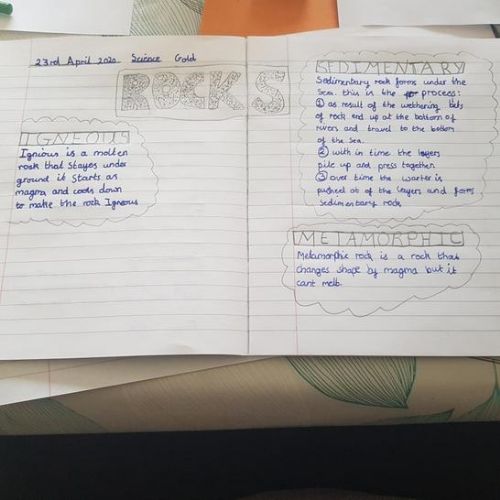 23rd April 2020 Science Gold
ROCKS
IGNEOUS
Ignious is a molten
rock that stayes under
ground it starts as
magma and cools down
to make the rock Igneous
SEDIMENTARY
Sedimentary rock forms under the
sea. this is the process:
① as result of the wethering bits
of rock end up at the bottom of
rivers and travel to the bottom
of the sea.
② with in time the layers
pile up and press together.
③ over time the warter is
pushed ot of the layers and forms
sedimentary rock
METAMORPHIC
Metamorphic rock is a rock that
changes shape by magma but it
cant melt.